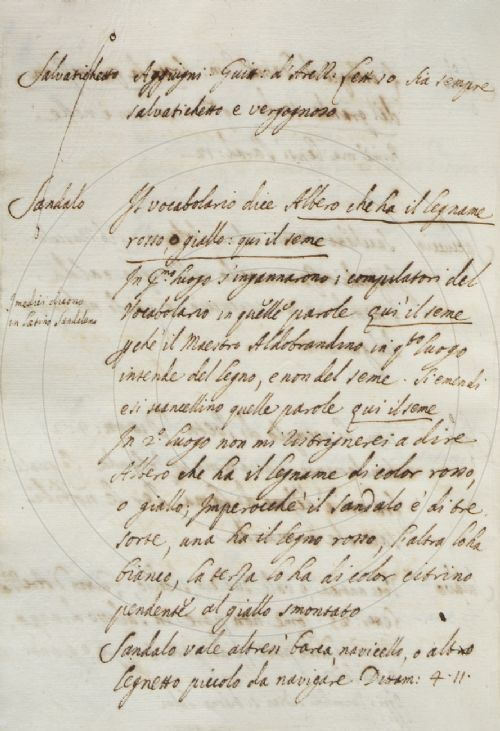 Salvatichetto Aggiugni: Guitt: d'Arezz: Lett 10 Sia sempre
salvatichetto e vergognoso
Sandalo Il vocabolario dice Albero che ha il legname
rosso o giallo: qui il seme
In pmo luogo s'ingannarono i compilatori del
Vocabolario in quelle parole qui il seme
I medici dicono
in Latino Sandalum
perchè il Maestro Aldobrandino in qto luogo
intende del legno, e non del seme. Si emendi
e si scancellino quelle parole qui il seme
In 2o luogo non mi ristrignerei a dire
Albero che ha il legname di color rosso,
o giallo; Imperocchè il sandalo è di tre
sorte, una ha il legno rosso, l'altra lo ha
bianco, la terza lo ha di color citrino
pendente al giallo smontato
Sandalo vale altresì barca navicello, o altro
legnetto piccolo da navigare Dittam: 4. 11.